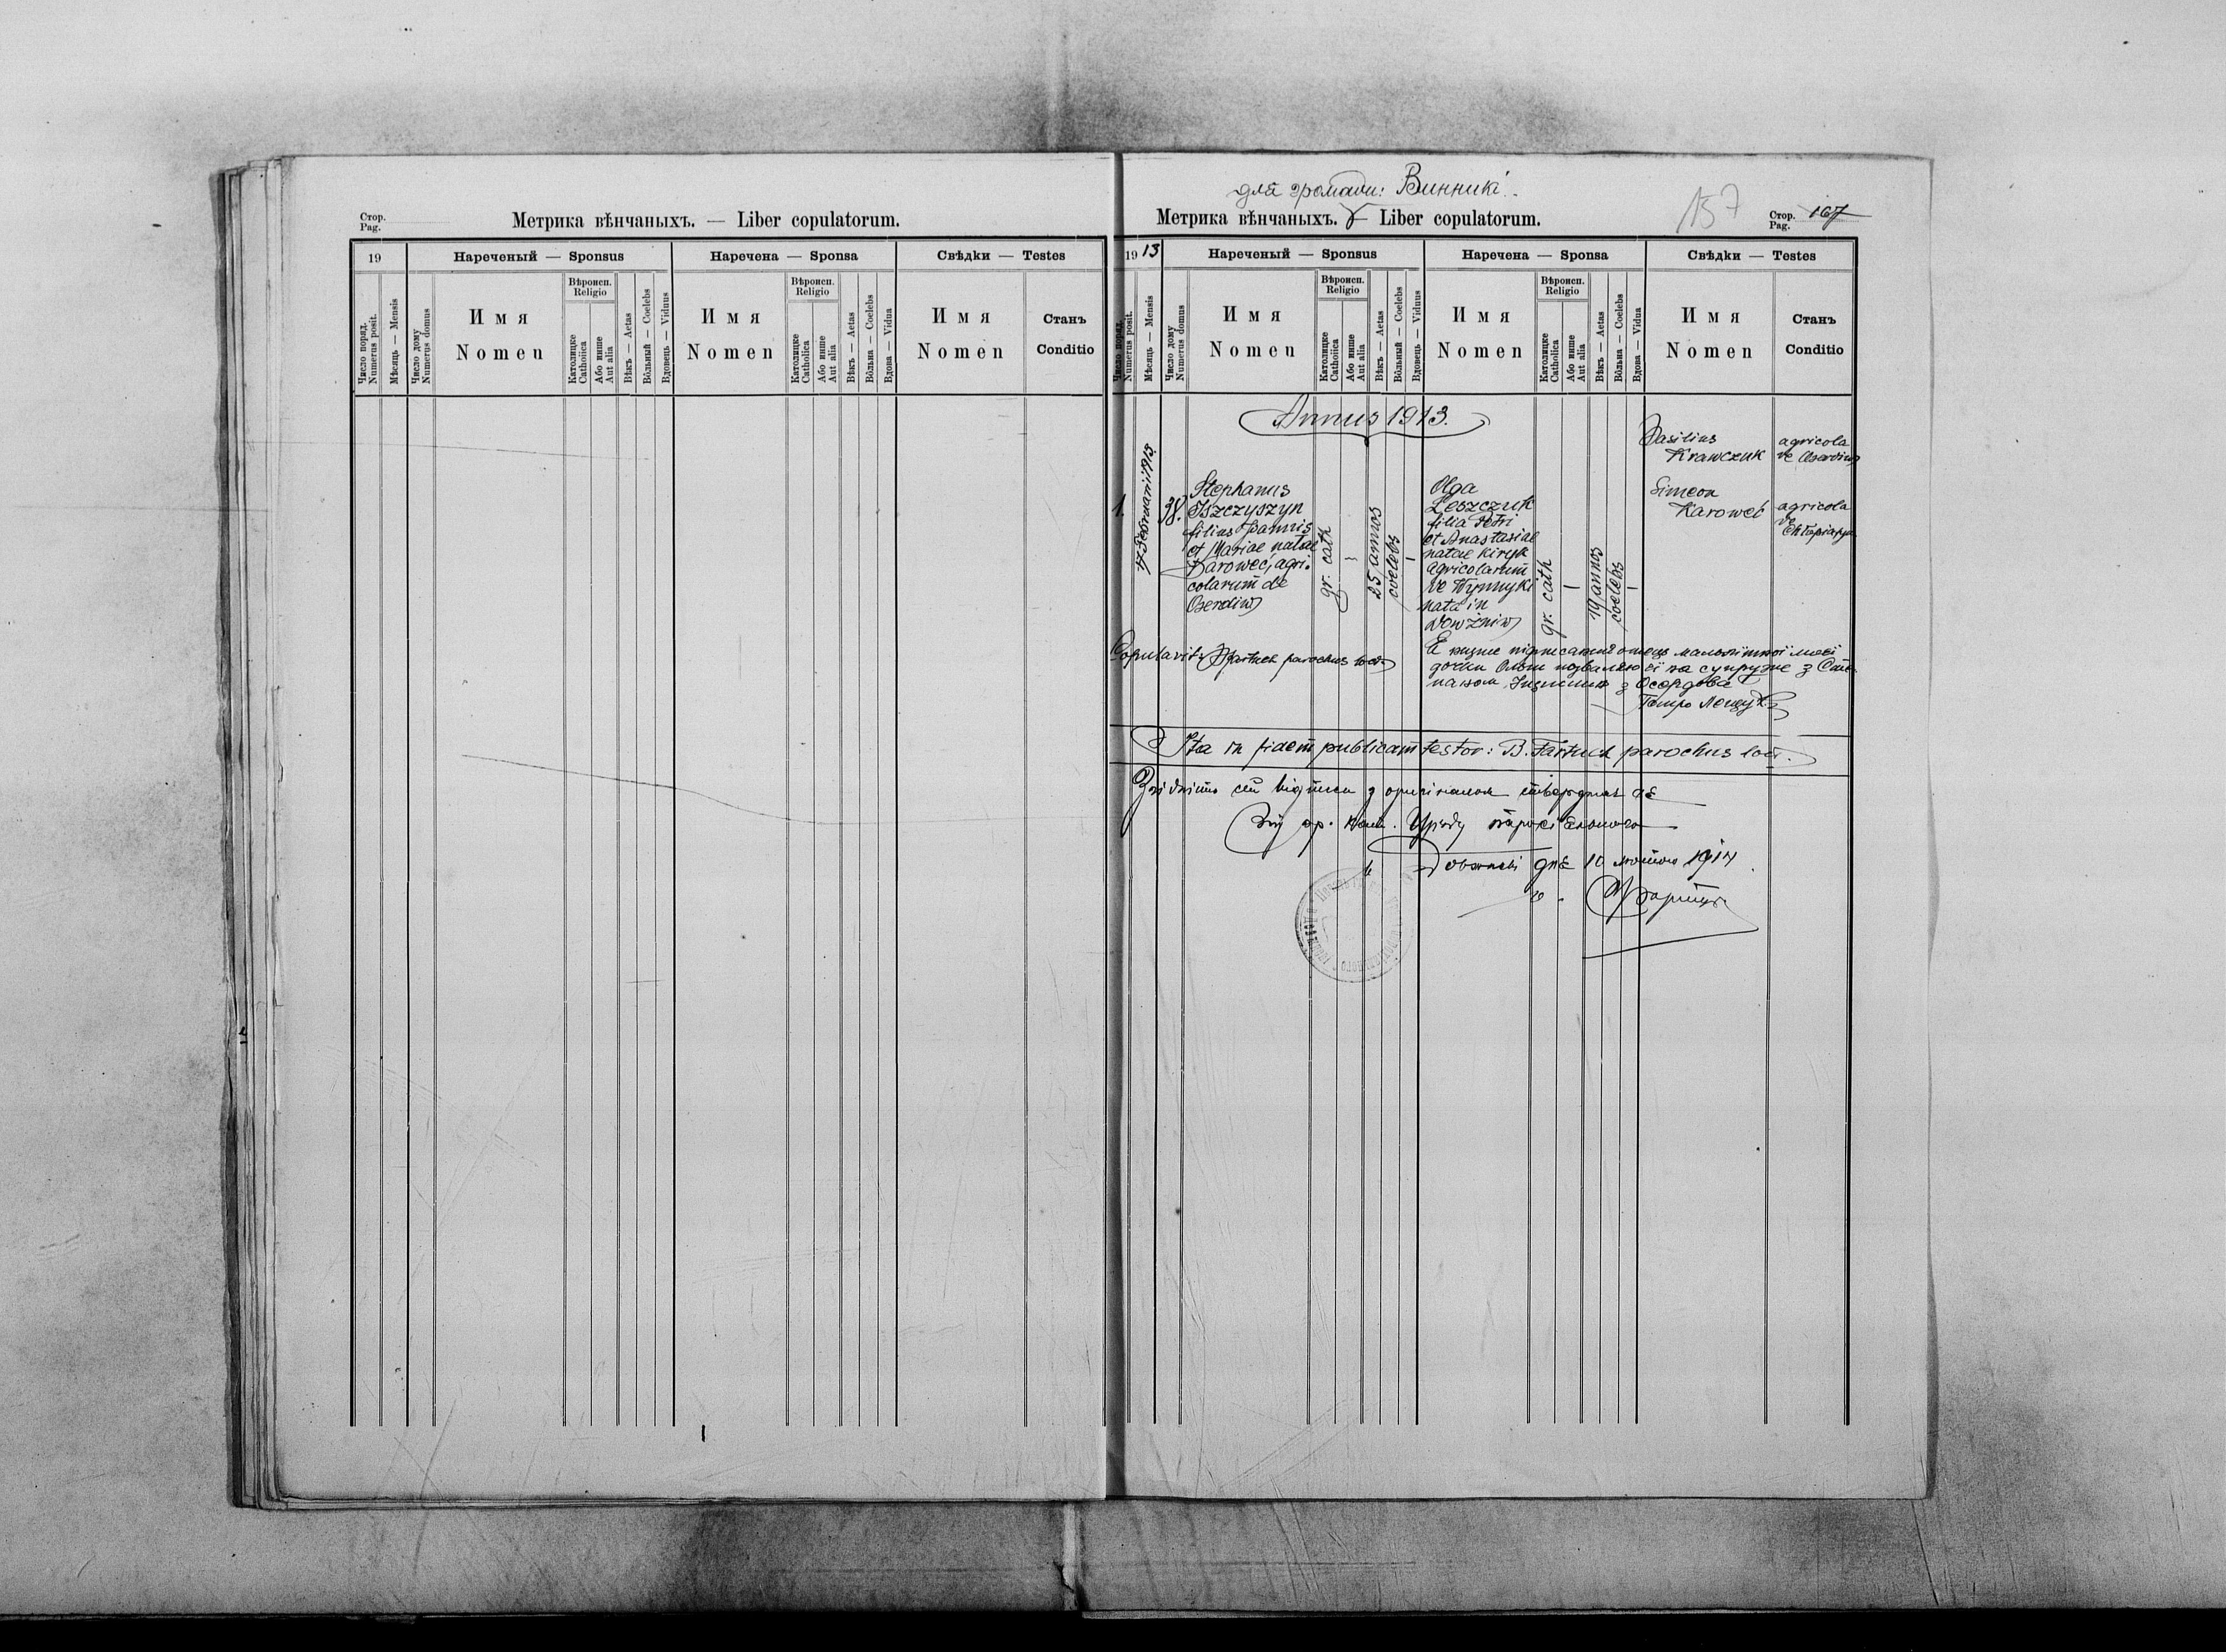 Стор.
Pag.
Метрика вѣнчаныхъ. — Liber copulatorum.
19
Нареченый — Sponsus
Наречена — Sponsa
Свѣдки — Testes
Число поряд.
Numerus posit.
Мѣсяць — Mensis
Число дому
Numerus domus
Имя
Nomen
Вѣроисп.
Religio
Католицке
Catholica
Або инше
Aut alia
Вѣкъ — Aetas
Вôльный — Coelebs
Вдовець — Viduus
Имя
Nomen
Вѣроисп.
Religio
Католицке
Catholica
Або инше
Aut alia
Вѣкъ — Aetas
Вôльна — Coelebs
Вдова — Vidua
Имя
Nomen
Станъ
Conditio
для громади: Винники.
Метрика вѣнчаныхъ. — Liber copulatorum.
157
Стор.
Pag.
167
1913
Нареченый — Sponsus
Наречена — Sponsa
Свѣдки — Testes
Число поряд.
Numerus posit.
Мѣсяць — Mensis
Число дому
Numerus domus
Имя
Nomen
Вѣроисп.
Religio
Католицке
Catholica
Або инше
Aut alia
Вѣкъ — Aetas
Вôльный — Coelebs
Вдовець — Viduus
Имя
Nomen
Вѣроисп.
Religio
Католицке
Catholica
Або инше
Aut alia
Вѣкъ — Aetas
Вôльна — Coelebs
Вдова — Vidua
Имя
Nomen
Станъ
Conditio
Annus 1913.
1.
Februarii 1913
38.
Stephanus
Iszczyszyn
filius Joannis
et Mariae natae
Karowec, agri-
colarum de
Oserdiw
gr. cath
25 annos
coelebs
Olga
Leszczuk
filia Petri
et Anastasiae
natae Kiryk
agricolarum
de Wynnyki
nata in
Nowżniw
gr. cath
19 annos
coelebs
Basilius
Krawczuk
agricola
de Oserdiw
Simeon
Karowec
agricola
de
Copulavit: B. Fartuch parochus loci
Я низше підписаний отець малолітної моєї
дочки Ольги позваляю єї на супруже з Сте-
паном Іщишин з Осердова
Петро Лещук
Ita in fidem publicam testor: B. Fartuch parochus loci.
Згідність сеи відписи з оригіналом стверджає ся
Від гр. кат. Уряду парохіяльного
дня 10 лютого 1914